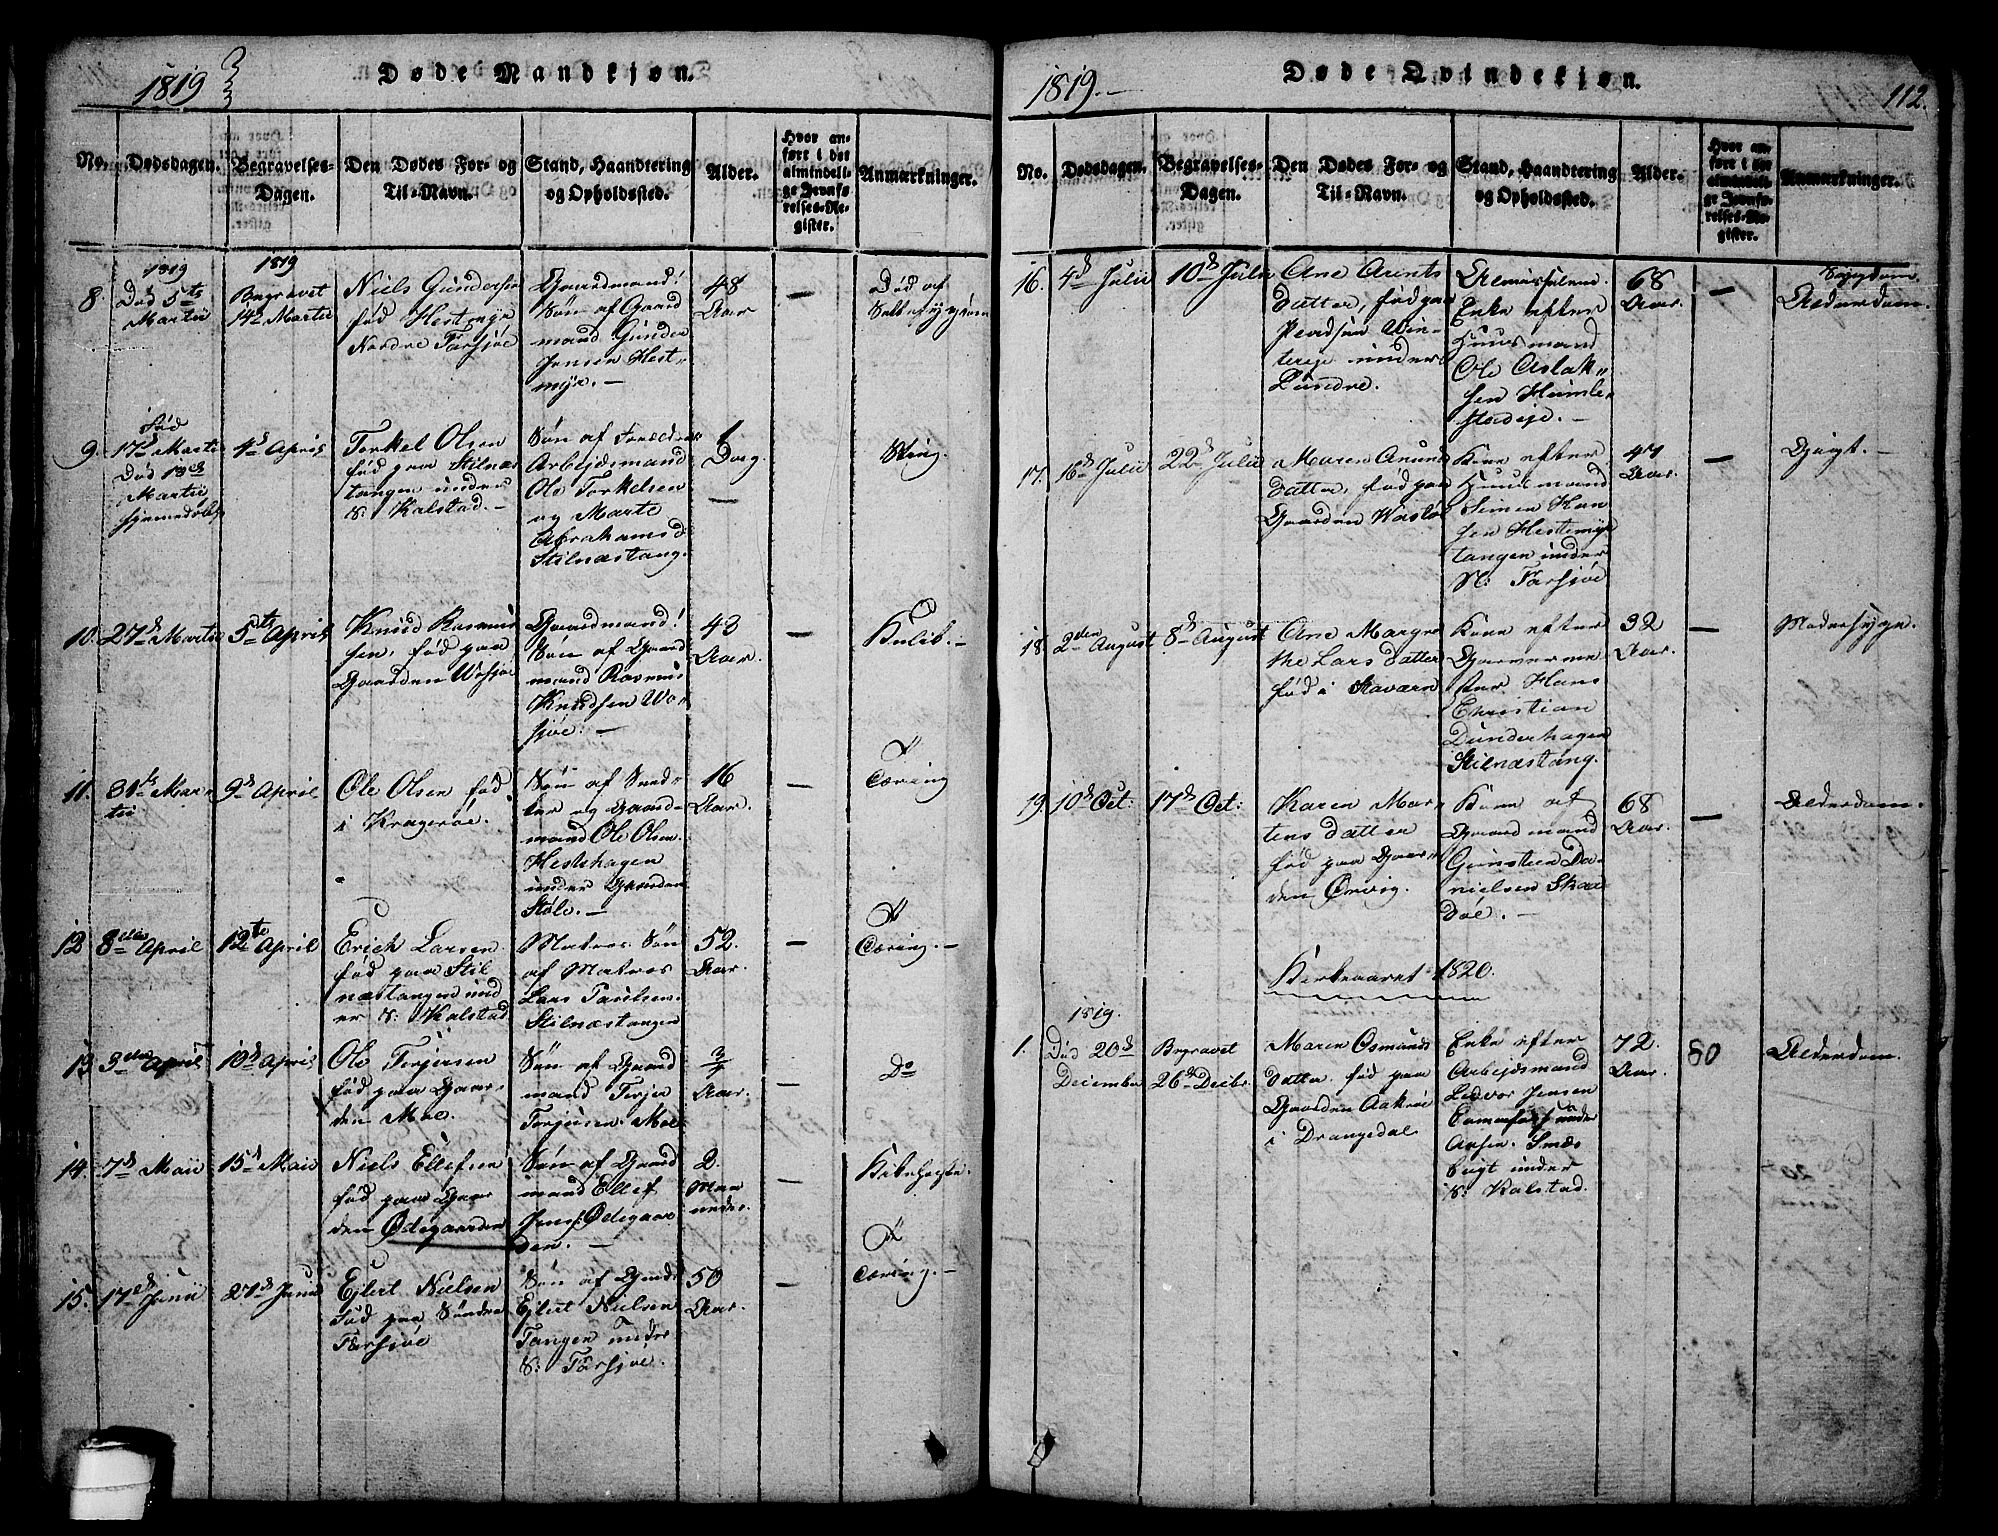 1819
Døde Mandkjøn.
No.
Dødsdagen.
Begravelses-
Dagen.
Den Dødes For- og
Til-Navn.
Stand, Haandtering
og Opholdssted.
Alder.
Hvor an-
ført i det
almindeli-
ge Jevnfø-
relses-Re-
gister.
Anmærkninger.
8.
1819
Død 5te
Martii
1819
Begravet
14de Martii
Niels Gundersen
fød Hestemyr
Nordre Farsjøe
Gaardmand!
Søn af Gaard
mand Gunder
Jensen Hest-
myr. –
48
Aar
—
Død af
9.
Fød
17de Martii
Død 18de
Martii
hjemmedøbt
4de April
Torkel Olsen
fød paa Stilnæs
tangen under
S: Kalstad. –
Søn af Forældre
Arbeidsmand
Ole Torkelsen
og Marte
Abrahamsd
Stilnæstang.
1.
Dag.
—
10.
27de Martii
5te April
Knud Rasmus
sen, fød paa
Gaarden Wasjøe
Gaardmand!
Søn af Gaard
mand Rasmus
Knudsen Wa-
sjøe. –
43
Aar.
—
11.
31te Mar-
tii
9de April
Ole Olsen fød
i Kragerøe. –
Søn af
og Gaard-
mand Ole Olsen
Hestehagen
under Gaarden
Støle. –
16
Aar.
—
Tæring
12
8de April
12te April
Erich Larsen
fød paa Stil
næstangen und
er S: Kalstad
Matros. Søn
af Matros
Lars Paulsen
Stilnæstangen
52.
Aar.
—
Tæring. –
13
3die April
10de April
Ole Terjesen
fød paa Gaar-
den Moe.
Søn af Gaard
mand Terje
Torjusen Moe
3/4
Aar.
—
Do
14.
7de Maii
15de Maii
Niels Ellefsen
fød paa Gaar
den Ødegaarden
Søn af Gaard
mand Ellef
Jens: Ødegaar
den. –
2.
Maa
neder.
—
Kikhoste.
15.
17de Junii
27de Junii
Ejlert Nielsen
Fød paa Søndre
Farsjøe
Søn af
Ejlert Nielsen
Tangen under
S: Farsjøe.
50
Aar.
—
Tæring. –
1819. –
Døde Qvindekjøn.
112.
No.
Dødsdagen.
Begravelses-
Dagen.
Den Dødes For- og
Til-Navn.
Stand, Haandtering
og Opholdssted.
Alder.
Hvor an-
ført i det
almindeli-
ge Jevnfø-
relses-Re-
gister.
Anmærkninger.
16.
4de Julii
10de Julii
Ane Arents
datter, fød paa
Win-
tereje under
Lundre.
Enke efter
Huusmand
Ole Aslak-
sen Humle-
stadeje. –
68
Aar.
—
Sygdom
Alderdom.
17.
16de Julii
22de Julii
Maren Anund
datter, fød paa
Gaarden Wasløe
Kone efter
Huusmand
Simen Han
sen Hestemyr
tangen under
N: Farsjøe
47
Aar.
—
Gigt. –
18.
2den August
8de August
Ane Margre
the Larsdatter
fød i Staværn
Kone efter
Garverme
ster Hans
Christian
Dunderhagen
Stilnæstang.
32
Aar.
—
Modersyge.
19.
10de Oct:
17de Oct:
Karen Mor-
tensdatter
fød paa Gaar-
den Ørvig.
Kone af
Gaardmand
Gunsteen Da-
nielsen Skaa-
døe. –
68
Aar.
—
Alderdom.
Kirkeaaret 1820.
1.
1819.
Død 20de
December
Begravet
26de Decbr.
Maren Osmunds
datter fød paa
Gaarden Aakrøe
i Drangedal
Enke efter
Arbeidsmand
Ledvor Jensen
Smæs
bugt under
S: Kalstad.
72.
Aar.
80
Alderdom.